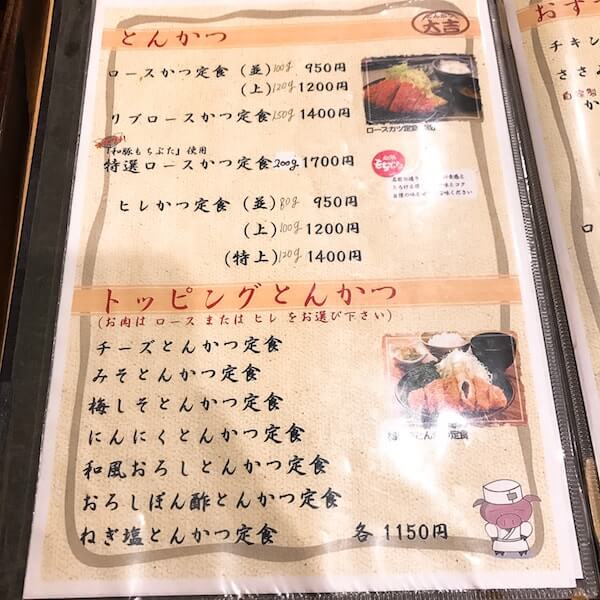 とんかつ
とんかつ
大吉
ロースかつ定食 (並) 100g 950円
(上) 120g 1200円
リブロースかつ定食 150g 1400円
「和豚もちぶた」使用
特選ロースかつ定食 200g 1700円
ヒレかつ定食 (並) 80g 950円
(上) 100g 1200円
(特上) 120g 1400円
ロースカツ定食
トッピングとんかつ
(お肉は ロース または ヒレ をお選び下さい)
チーズとんかつ定食
みそとんかつ定食
梅しそとんかつ定食
にんにくとんかつ定食
和風おろしとんかつ定食
おろしぽん酢とんかつ定食
ねぎ塩とんかつ定食 各 1150円
とんかつ定食
おす
チキン
ささみ
自家製
か